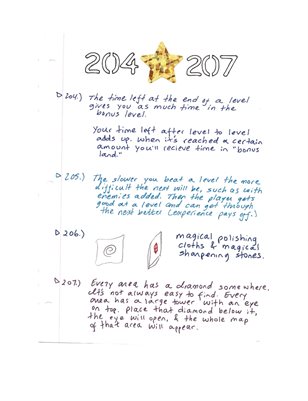 204 207
204.) The time left at the end of a level
gives you as much time in the
bonus level.
Your time left after level to level
adds up. When it's reached a certain
amount you'll recieve time in "bonus
land."
205.) The slower you beat a level the more
difficult the next will be, such as with
enemies added. Then the player gets
good at a level and can get through
the next better (experience pays off.)
206.)
magical polishing
cloths & magical
sharpening stones.
207.) Every area has a diamond somewhere,
It's not always easy to find. Every
area has a large tower with an eye
on top. Place that diamond below it,
the eye will open, & the whole map
of that area will appear.